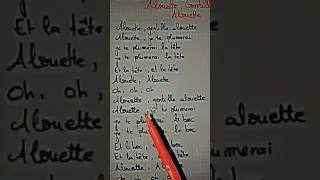 Alouette, Gentille
Alouette
Et la tête
Alouette, gentille alouette
Alouette, je te plumerai
je te plumerai la tête
je te plumerai la tête
Et la tête, et la tête
Alouette, Alouette
Oh, oh, oh
Alouette, gentille alouette
Alouette, je te plumerai
je te le bec
je te le bec
Et le bec, bec
Et la tête, tête
Alouette, Alouette
Oh, oh, oh